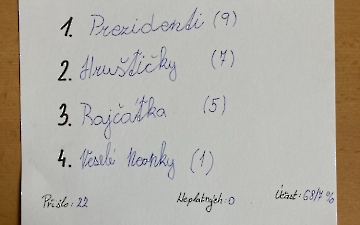 1. Prezidenti (9)
2. Hruštičky (7)
3. Rajčátka (5)
4. Veselé (1)
Přišlo: 22 Neplatných: 0 Účast: